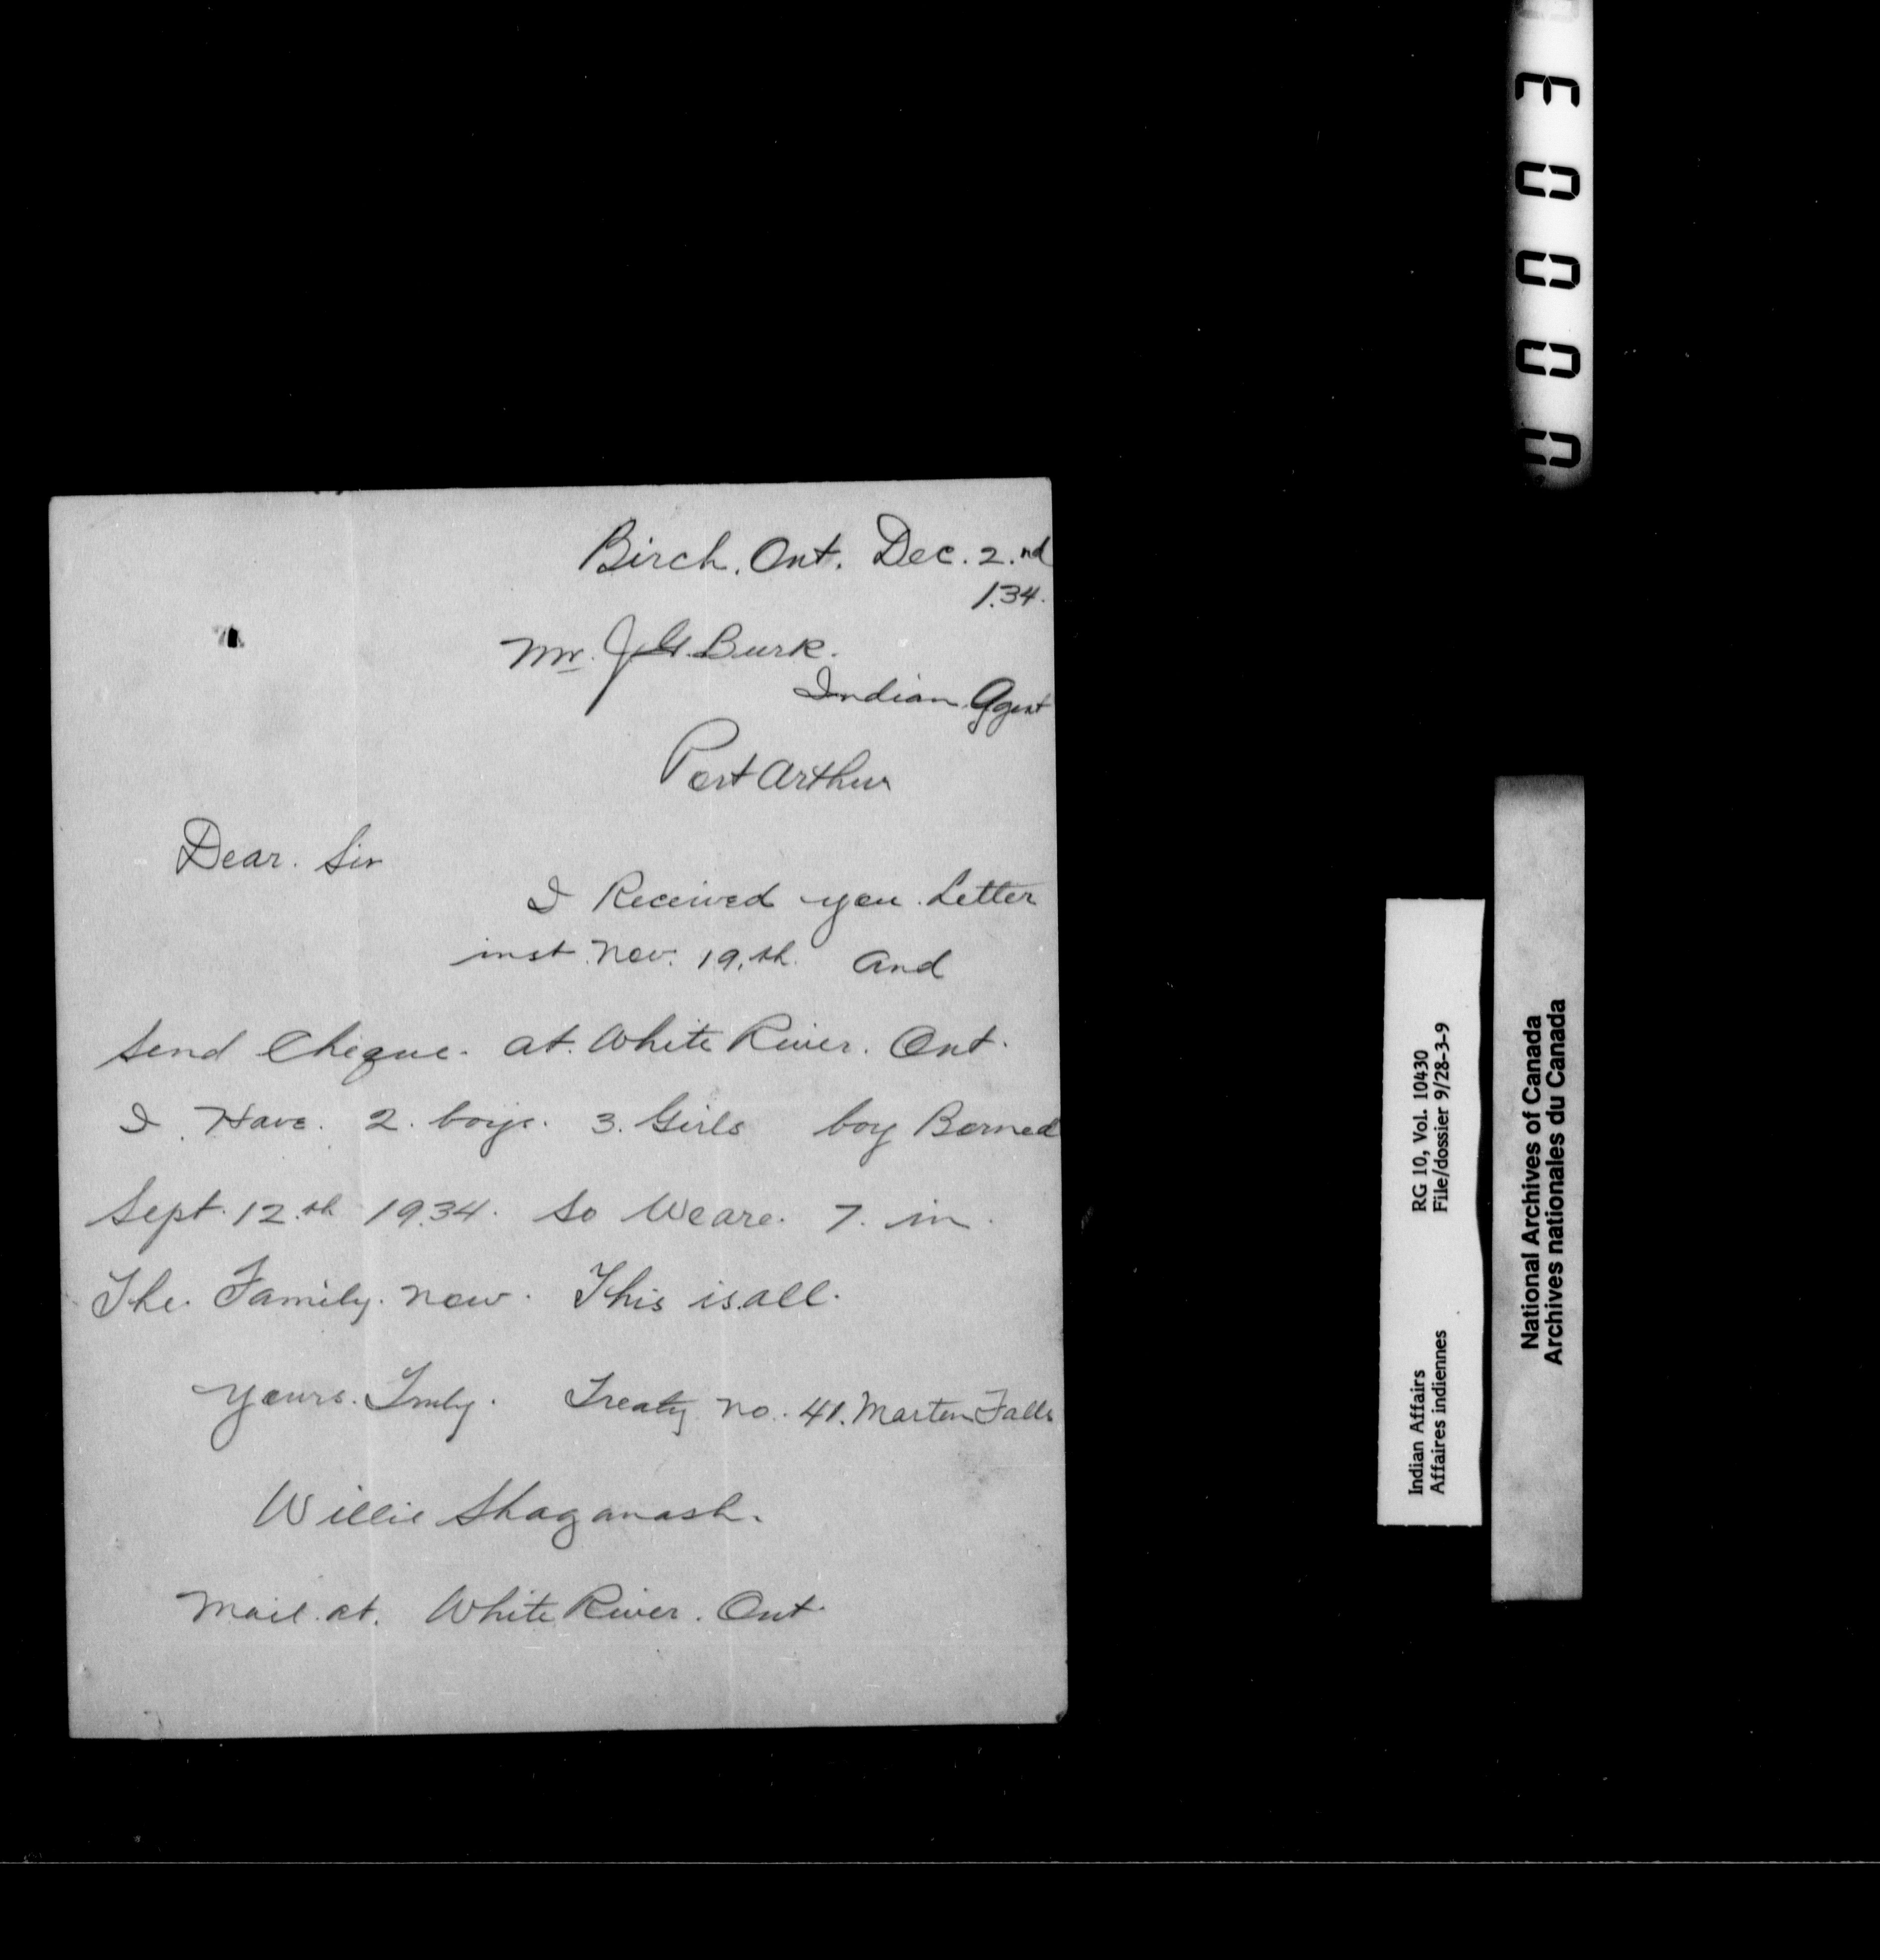 Birch. Ont. Dec. 2.nd
1.34.
Mr. J.G. Burk.
Indian Agent
Port Arthur
Dear. Sir
I Received you Letter
inst Nov. 19.th. and
Send Cheque. at. White River. Ont.
I. Have. 2. boys. 3. Girls boy Borned
Sept. 12.th 19.34. So We are. 7. in.
The. Family. now. This is all.
Yours. Truly. Treaty no. 41. Marten Falls
Willie Shaganash.
Mail at. White River. Ont.
00003
Indian Affairs RG 10, Vol. 10430
Affaires indiennes File/dossier 9/28-3-9
National Archives of Canada
Archives nationales du Canada